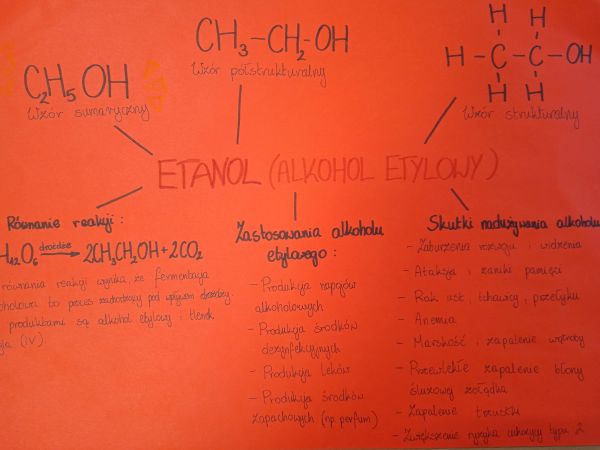 C2H5OH
Wzór sumaryczny
CH3-CH2-OH
Wzór półstrukturalny
H H
H-C-C-OH
H H
Wzór strukturalny
ETANOL (ALKOHOL ETYLOWY)
Równanie reakcji:
H12O6 drożdże → 2CH3CH2OH+2CO2
równania reakcji wynika, że fermentacja
to proces zachodzący pod wpływem drożdży.
produktami są alkohol etylowy i tlenek
(IV).
Zastosowania alkoholu
etylowego:
- Produkcja napojów
alkoholowych
- Produkcja środków
dezynfekcyjnych
- Produkcja leków
- Produkcja środków
zapachowych (np perfum)
Skutki nadużywania alkoholu
- Zaburzenia rozwoju i widzenia
- Ataksja i zaniki pamięci
- Rak ust, tchawicy, przełyku
- Anemia
- Marskość i zapalenie wątroby
- Przewlekłe zapalenie błony
śluzowej żołądka
- Zapalenie trzustki
- Zwiększenie ryzyka cukrzycy typu 2